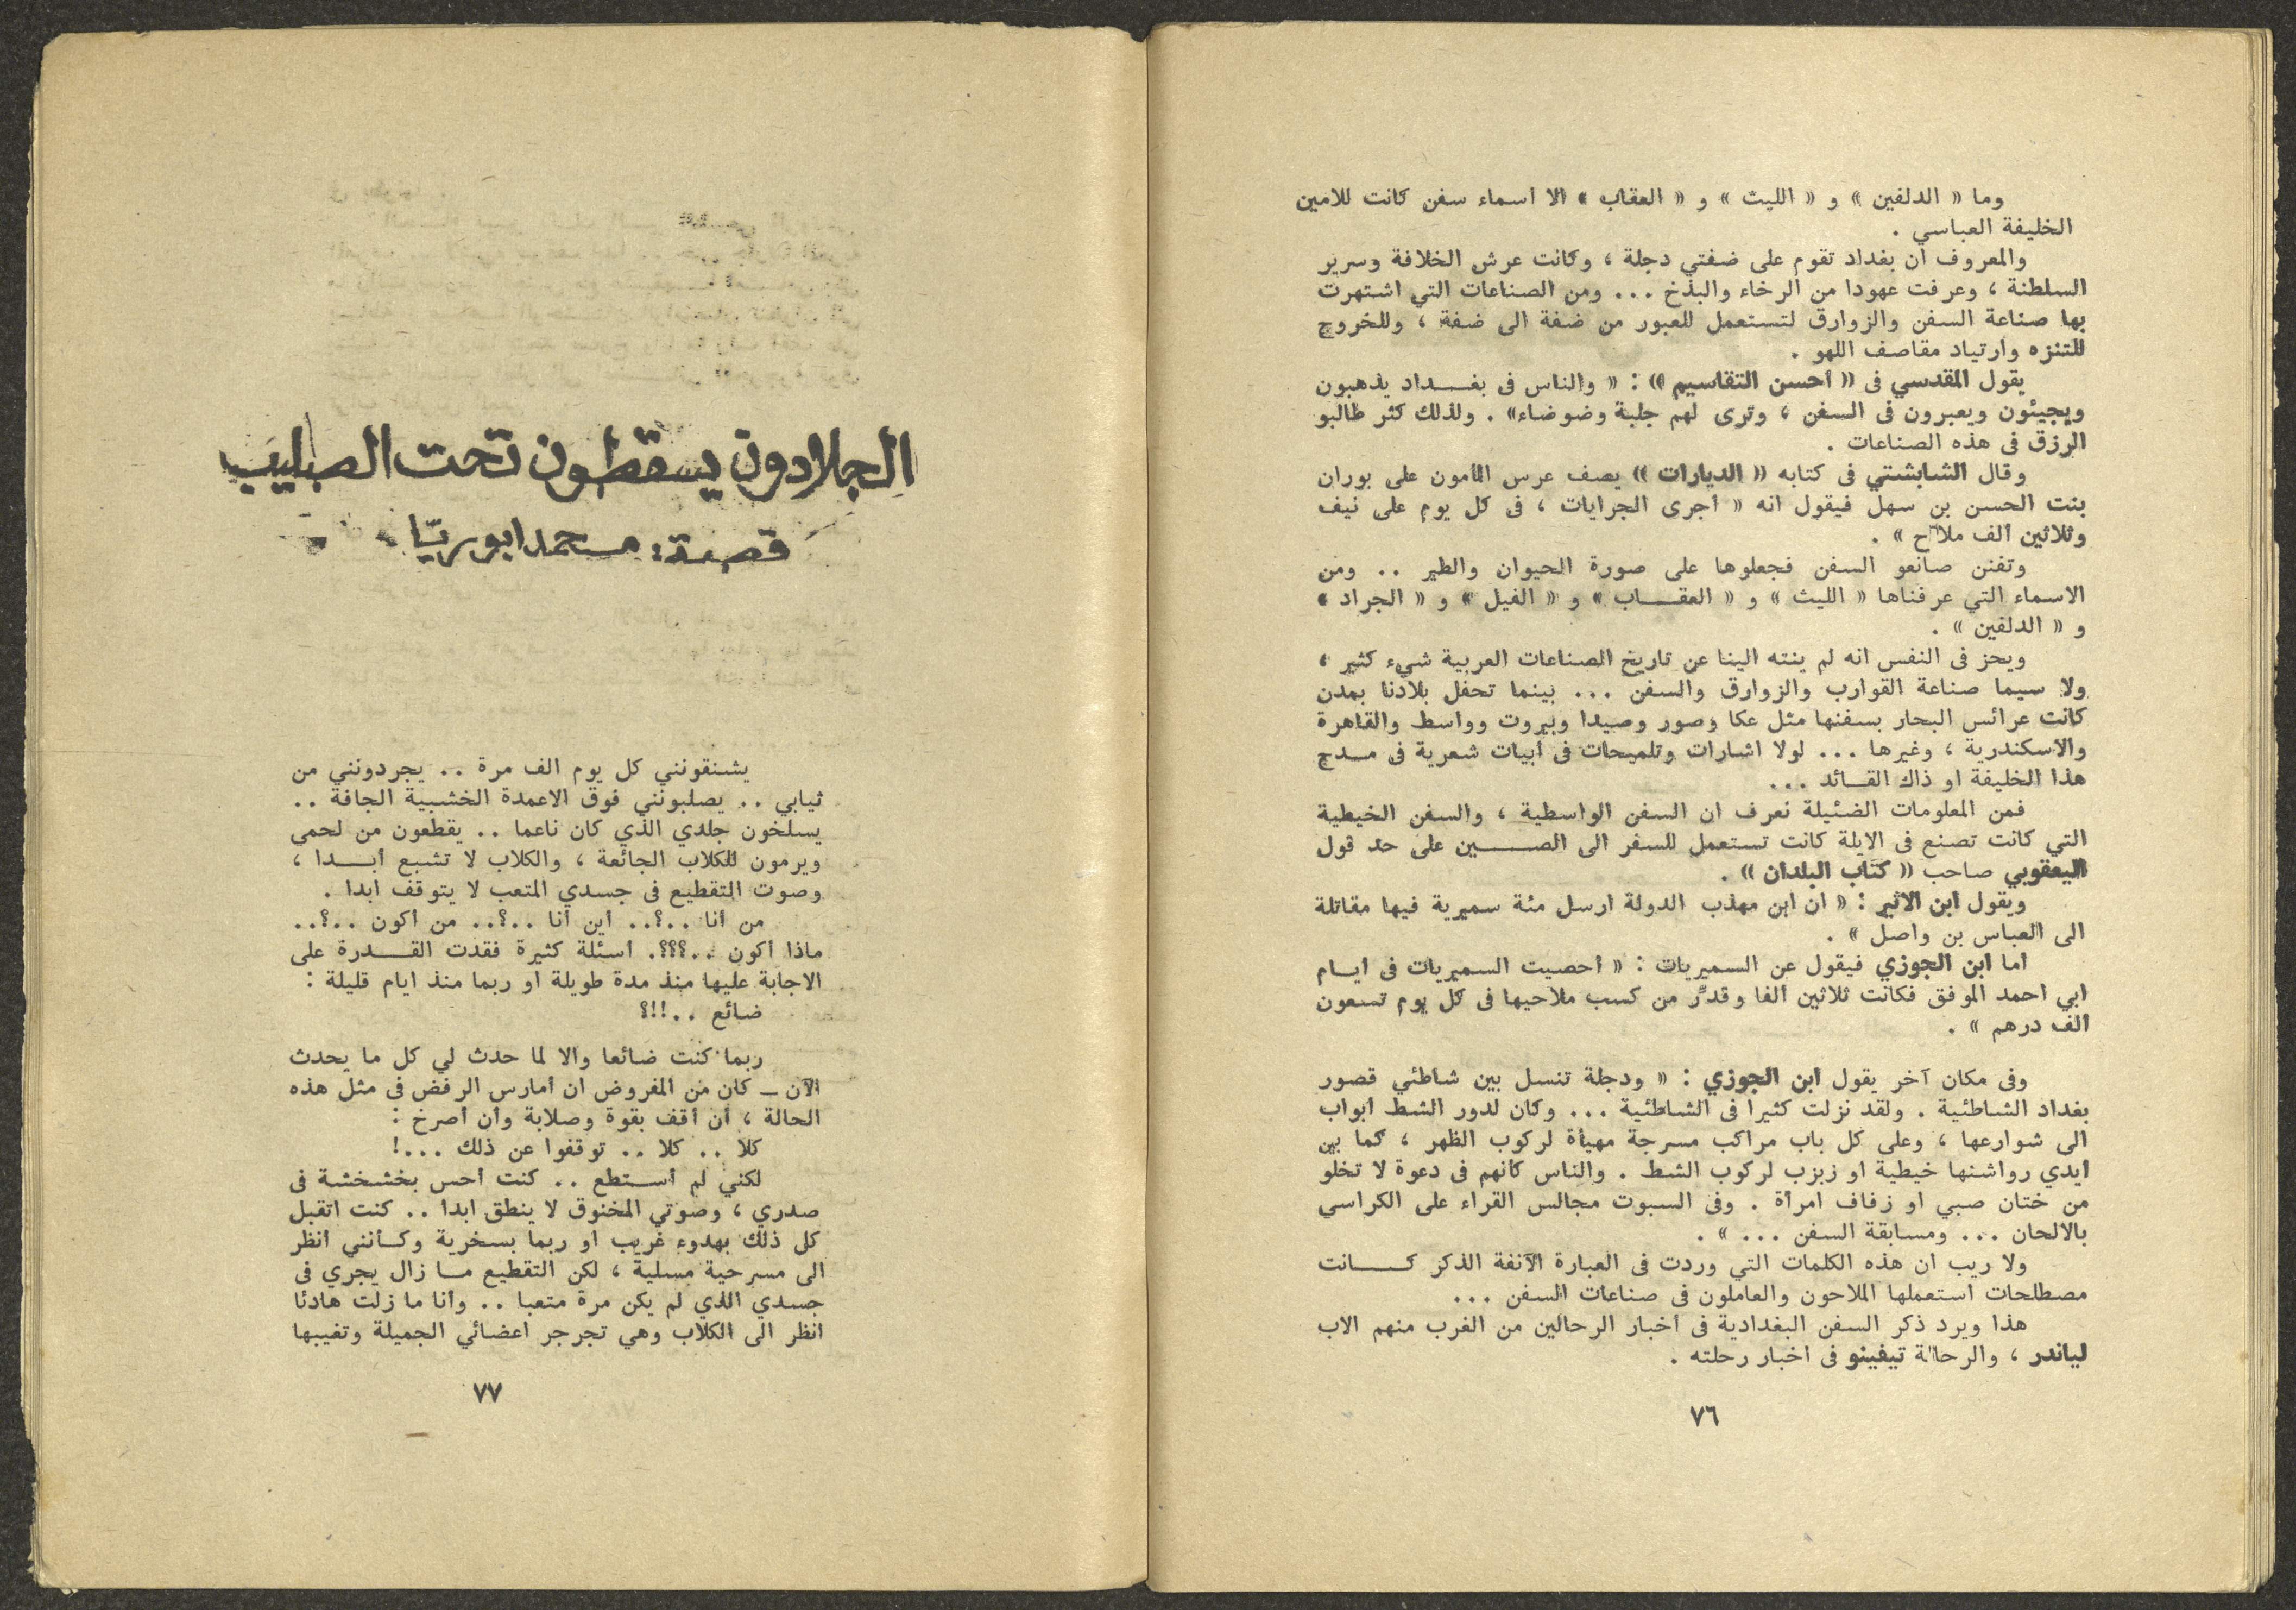 وما « الدلفين » و « الليث » و « العقاب » الا اسماء سفن كانت للامين
الخليفة العباسي .
والمعروف ان بغداد تقوم على ضفتي دجلة ، وكانت عرش الخلافة وسرير
السلطنة ، وعرفت عهودا من الرخاء والبذخ ... ومن الصناعات التي اشتهرت
بها صناعة السفن والزوارق لتستعمل للعبور من ضفة الى ضفة ، وللخروج
للتنزه وارتياد مقاصف اللهو .
يقول المقدسي فى « أحسن التقاسيم » : « والناس فى بغداد يذهبون
ويجيئون ويعبرون فى السفن ، وترى لهم جلبة وضوضاء» . ولذلك كثر طالبو
الرزق فى هذه الصناعات .
وقال الشابشتي فى كتابه « الديارات » يصف عرس المأمون على بوران
بنت الحسن بن سهل فيقول انه « أجرى الجرايات ، فى كل يوم على نيف
وثلاثين ألف ملاّح » .
وتفنن صانعو السفن فجعلوها على صورة الحيوان والطير .. ومن
الاسماء التي عرفناها « الليث » و « العقاب » و « الفيل » و « الجراد »
و « الدلفين » .
ويحز فى النفس انه لم ينته الينا عن تاريخ الصناعات العربية شيء كثير ،
ولا سيما صناعة القوارب والزوارق والسفن ... بينما تحفل بلادنا بمدن
كانت عرائس البحار بسفنها مثل عكا وصور وصيدا وبيروت وواسط والقاهرة
والاسكندرية ، وغيرها ... لولا اشارات وتلميحات فى أبيات شعرية فى مدح
هذا الخليفة او ذاك القائد ...
فمن المعلومات الضئيلة نعرف ان السفن الواسطية ، والسفن الخيطية
التي كانت تصنع فى الايلة كانت تستعمل للسفر الى الصين على حد قول
اليعقوبي صاحب « كتاب البلدان » .
ويقول ابن الاثير : « ان ابن مهذب الدولة ارسل مئة سميرية فيها مقاتلة
الى العباس بن واصل » .
أما ابن الجوزي فيقول عن السميريات : « أحصيت السميريات فى أيام
ابي احمد الموفق فكانت ثلاثين ألفا وقدّر من كسب ملاحيها فى كل يوم تسعون
الف درهم » .
وفى مكان آخر يقول ابن الجوزي : « ودجلة تنسل بين شاطئي قصور
بغداد الشاطئية . ولقد نزلت كثيرا فى الشاطئية ... وكان لدور الشط ابواب
الى شوارعها ، وعلى كل باب مراكب مسرجة مهيأة لركوب الظهر ، كما بين
أيدي رواشنها خيطية او زبزب لركوب الشط . والناس كأنهم فى دعوة لا تخلو
من ختان صبي او زفاف امرأة . وفى السبوت مجالس القراء على الكراسي
بالالحان ... ومسابقة السفن ... » .
ولا ريب ان هذه الكلمات التي وردت فى العبارة الآنفة الذكر كانت
مصطلحات استعملها الملاحون والعاملون فى صناعات السفن ...
هذا ويرد ذكر السفن البغدادية فى أخبار الرحالين من الغرب منهم الاب
لياندر ، والرحالة تيفينو فى اخبار رحلته .
٧٦
الجلادون يسقطون تحت الصليب
قصة : محمد ابو ريّا
يشنقونني كل يوم الف مرة .. يجردونني من
ثيابي .. يصلبونني فوق الاعمدة الخشبية الجافة ..
يسلخون جلدي الذي كان ناعما .. يقطعون من لحمي
ويرمون للكلاب الجائعة ، والكلاب لا تشبع أبدا ،
وصوت التقطيع فى جسدي المتعب لا يتوقف ابدا .
من أنا ..؟.. أين أنا ..؟.. من أكون ..؟..
ماذا أكون ..؟؟؟. أسئلة كثيرة فقدت القدرة على
الاجابة عليها منذ مدة طويلة او ربما منذ ايام قليلة :
ضائع ..!!؟
ربما كنت ضائعا والا لما حدث لي كل ما يحدث
الآن ـ كان من المفروض ان أمارس الرفض فى مثل هذه
الحالة ، أن أقف بقوة وصلابة وأن أصرخ :
كلا .. كلا .. توقفوا عن ذلك ...!
لكني لم أستطع .. كنت أحس بخشخشة فى
صدري ، وصوتي المخنوق لا ينطق ابدا .. كنت اتقبل
كل ذلك بهدوء غريب او ربما بسخرية وكأنني انظر
الى مسرحية مسلية ، لكن التقطيع ما زال يجري فى
جسدي الذي لم يكن مرة متعبا .. وأنا ما زلت هادئا
انظر الى الكلاب وهي تجرجر اعضائي الجميلة وتغيبها
٧٧